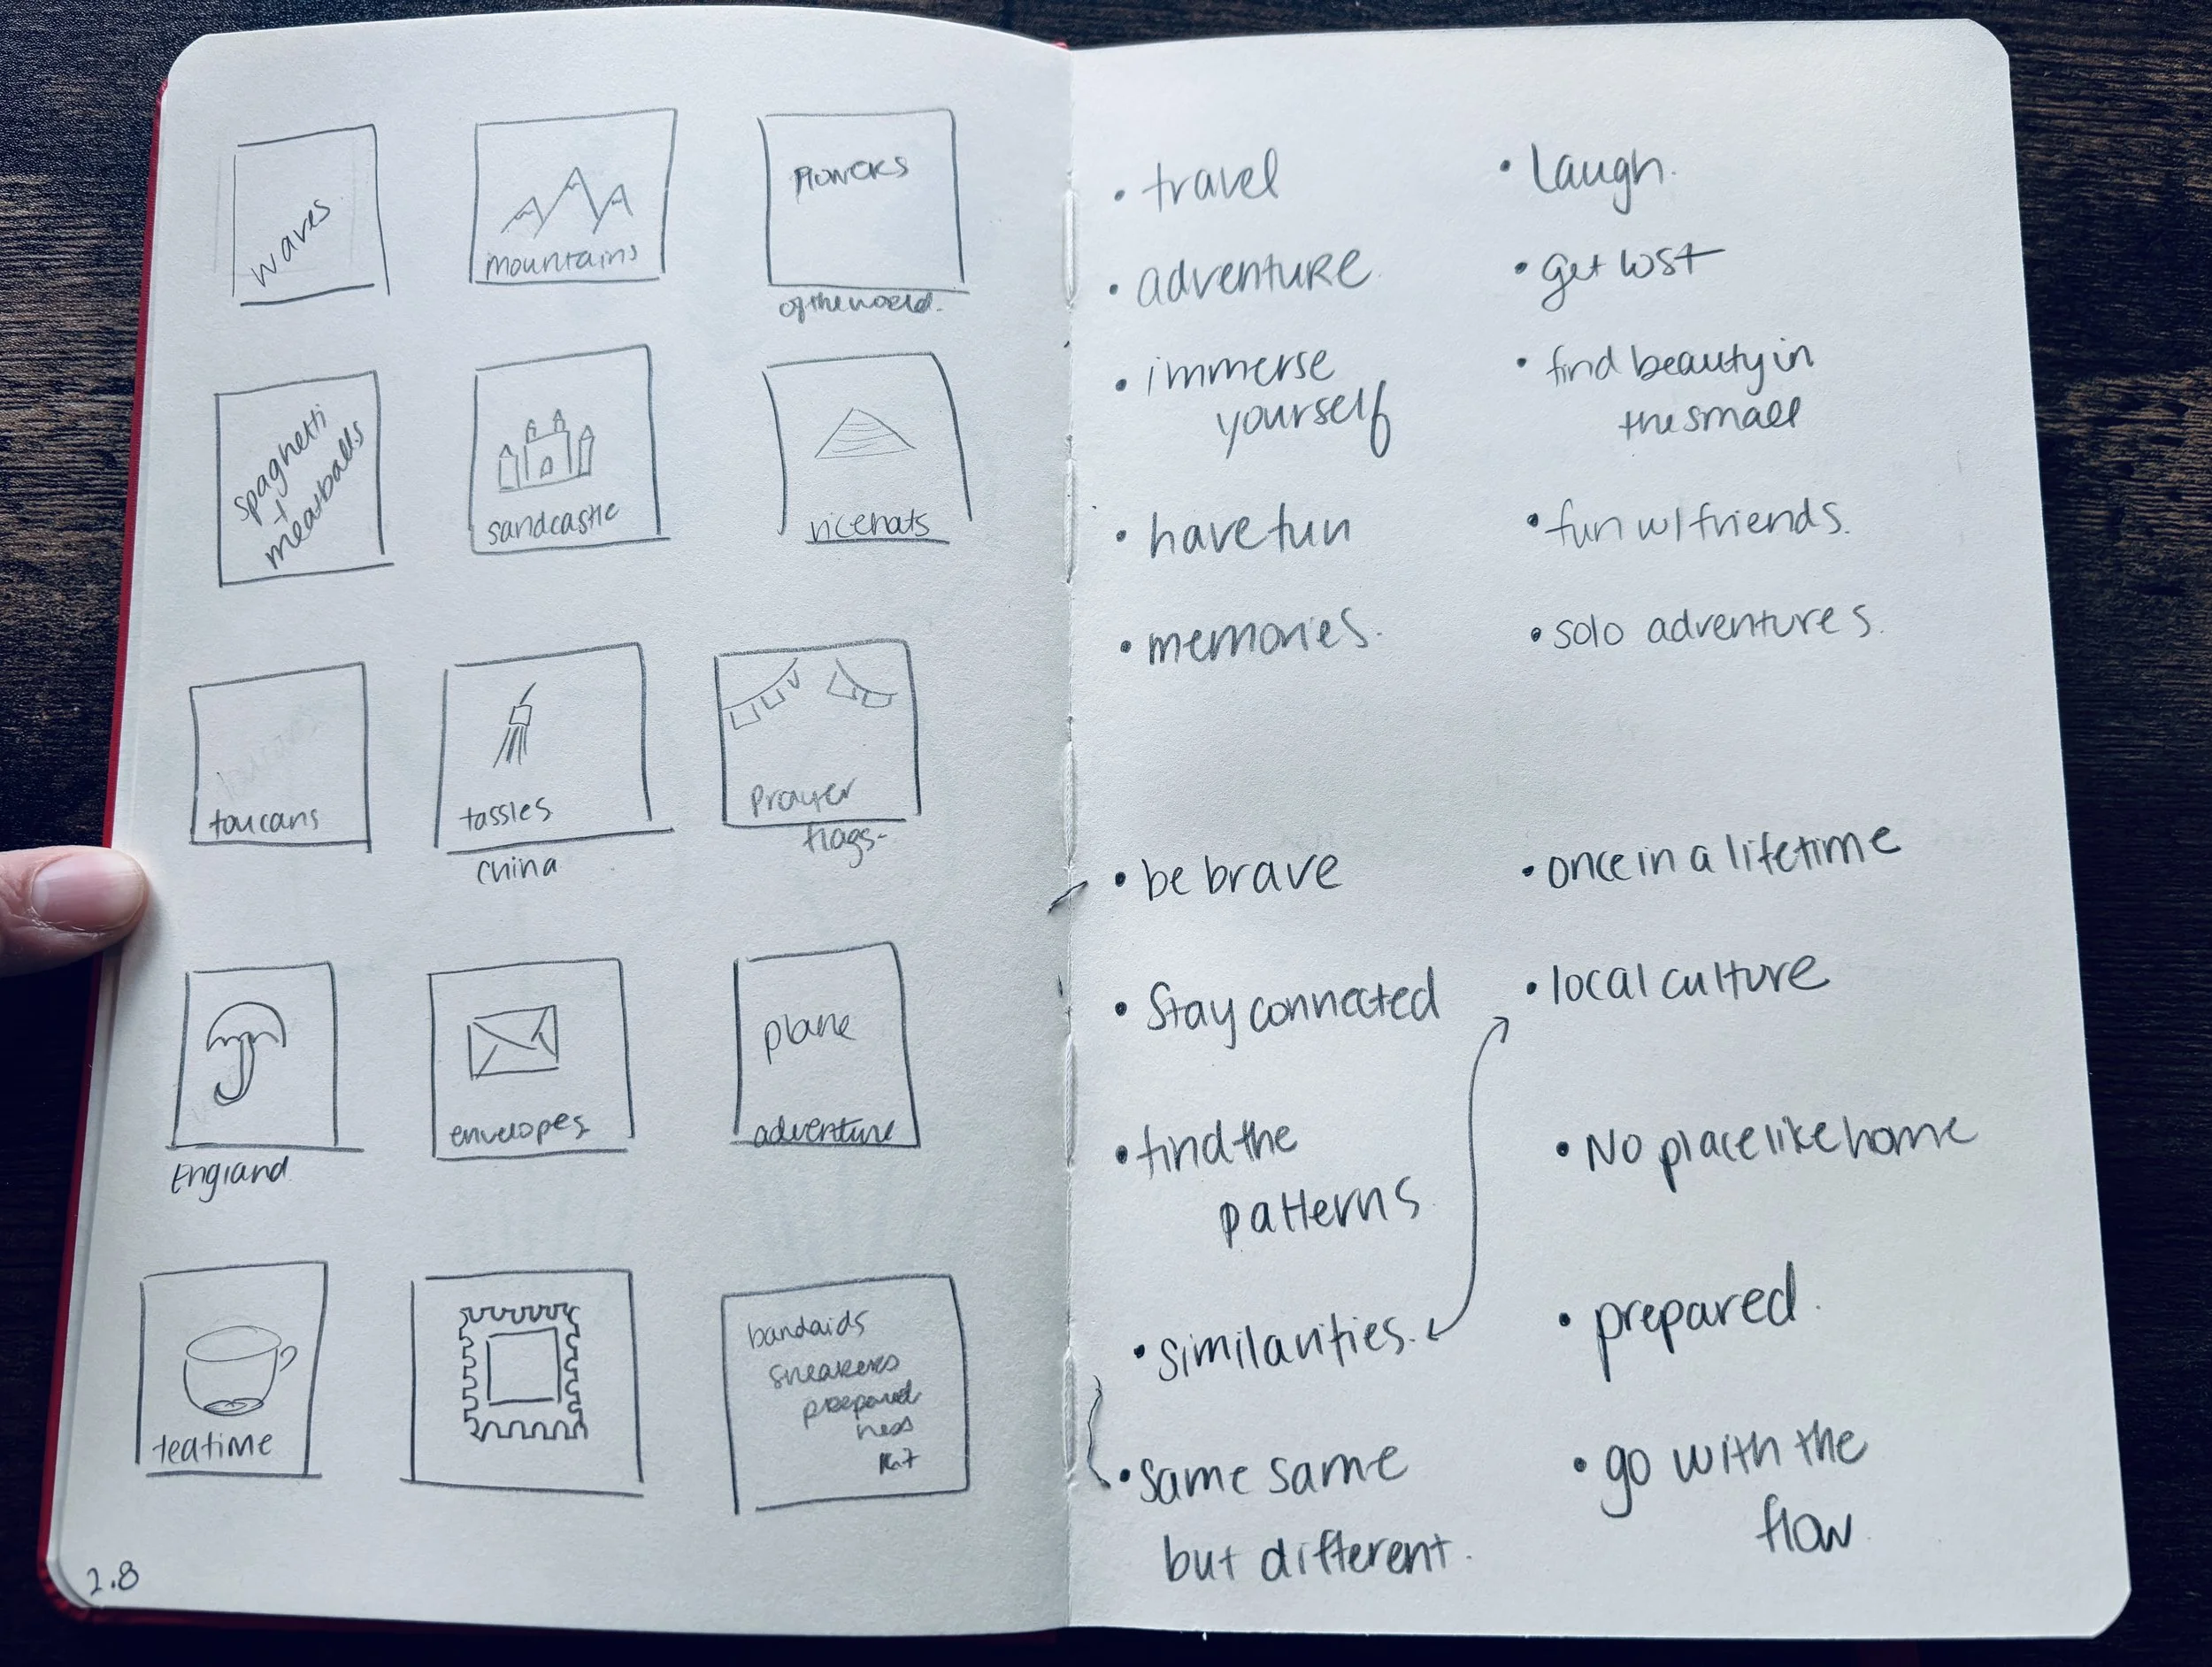 waves
mountains
flowers
of the world.
spaghetti
+
meatballs
sandcastle
ricehats
toucans
tassles
china
prayer
flags-
England
envelopes
plane
adventure
teatime
bandaids
sneakers
prepared
ness
kit
2.8
• travel
• adventure
• immerse
yourself
• have fun
• memories.
• laugh.
• get lost
• find beauty in
the small
• fun w/ friends.
• solo adventures.
• be brave
• Stay connected
• find the
patterns
• similarities.
• same same
but different.
• once in a lifetime
• local culture
• No place like home
• prepared.
• go with the
flow